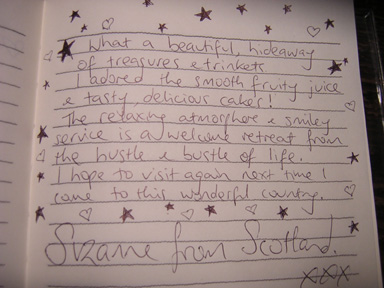 What a beautiful, hideaway
of treasures & trinkets
I adored the smooth fruity juice
& tasty, delicious cakes!
The relaxing atmosphere & smiley
service is a welcome retreat from
the hustle & bustle of life.
I hope to visit again next time I
come to this wonderful country.
Suzanne from Scotland.
xxx